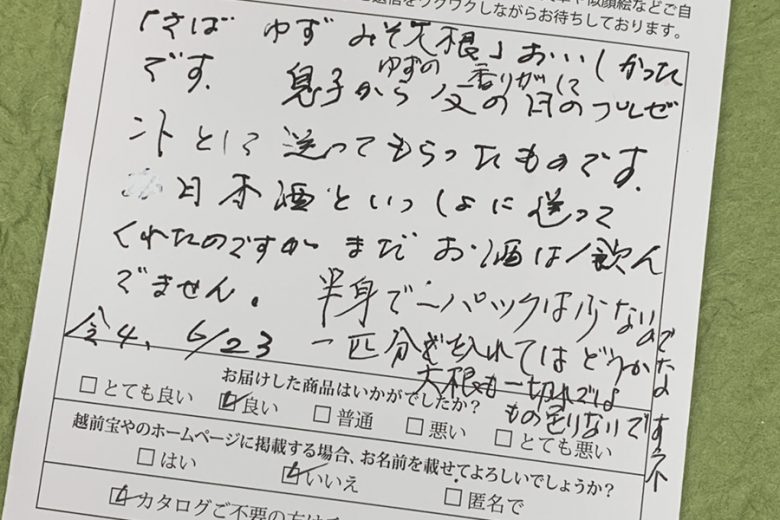 返信をワクワクしながらお待ちしております。
「さば ゆず みそ大根」おいしかった
です。 ゆずの 香りがして
息子から 父の日のプレゼ
ントとして送ってもらったものです。
日本酒といっしょに送って
くれたのですが まだ お酒は飲ん
でません。 半身で二パックは少ないので
令4、6/23 一匹分を入れてはどうか
大根も一切れでは
もの足りないです
お届けした商品はいかがでしたか?
とても良い 良い 普通 悪い とても悪い
越前宝やのホームページに掲載する場合、お名前を載せてよろしいでしょうか?
はい いいえ 匿名で
カタログご不要の方は